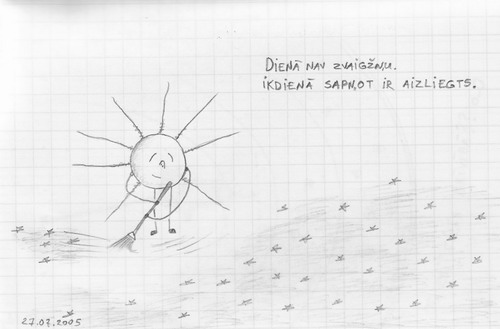 DIENĀ NAV ZVAIGŽŅU.
IKDIENĀ SAPŅOT IR AIZLIEGTS.
27.07.2005